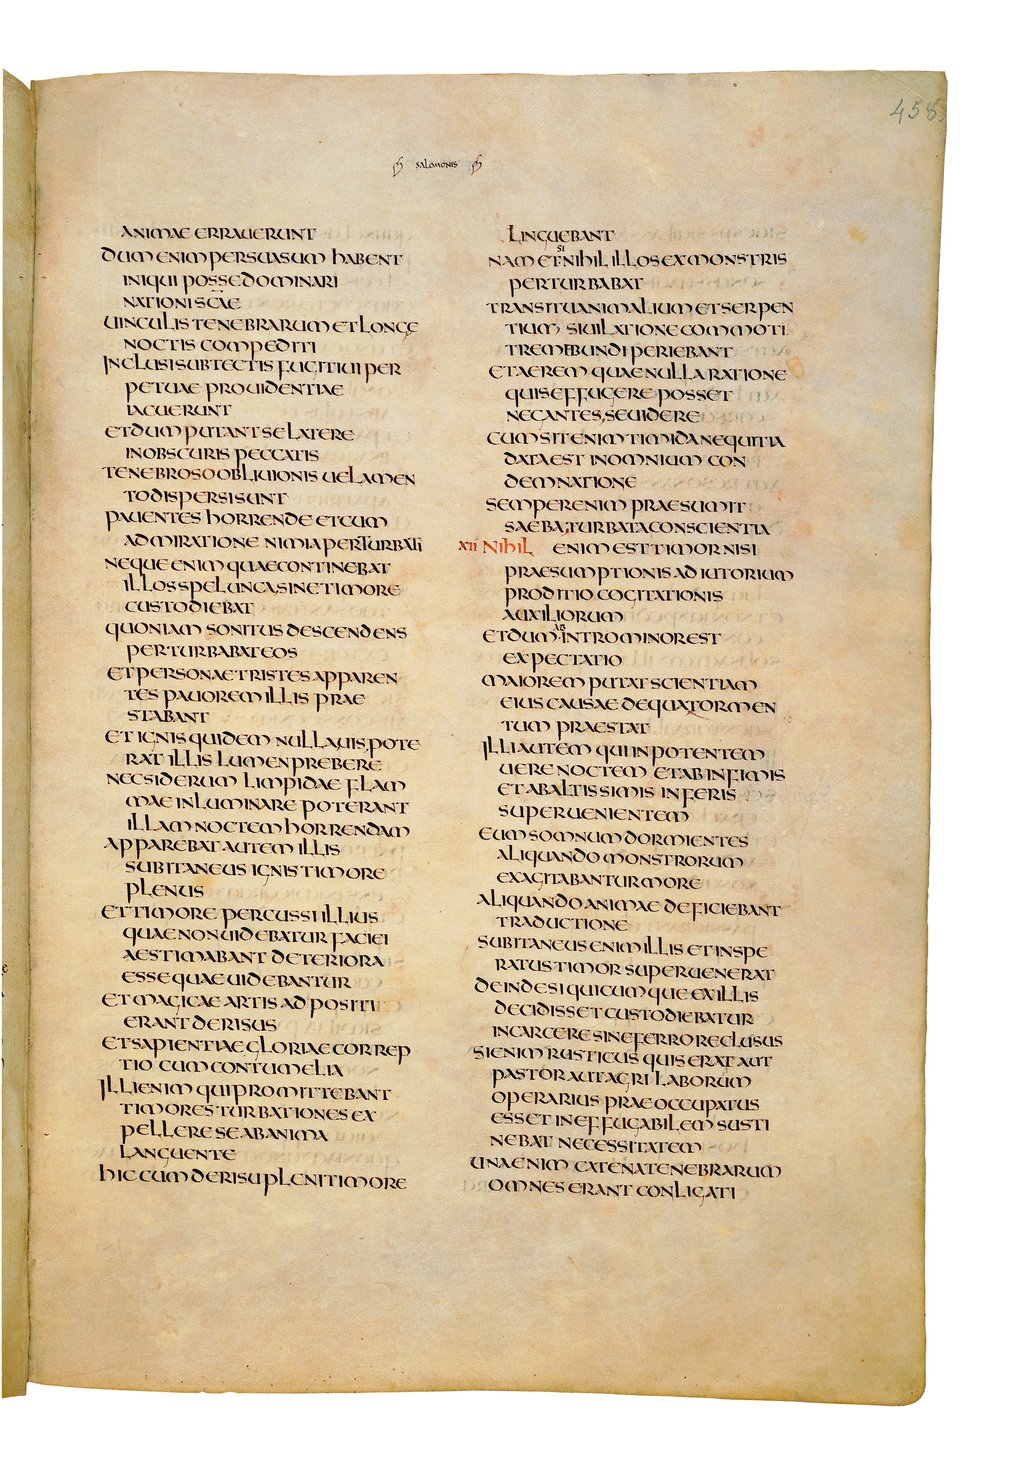 458.
SALOMONIS
ANIMAE ERRAUERUNT
DUM ENIM PERSUASUM HABENT
INIQUI POSSE DOMINARI
NATIONI SCAE
UINCULIS TENEBRARUM ET LONGE
NOCTIS COMPEDITI
INCLUSI SUB TECTIS FUGITIUI PER
PETUAE PROUIDENTIAE
IACUERUNT
ET DUM PUTANT SE LATERE
IN OBSCURIS PECCATIS
TENEBROSO OBLIUIONIS UELAMEN
TO DISPERSI SUNT
PAUENTES HORRENDE ET CUM
ADMIRATIONE NIMIA PERTURBATI
NEQUE ENIM QUAE CONTINEBAT
ILLOS SPELUNCA, SINE TIMORE
CUSTODIEBAT
QUONIAM SONITUS DESCENDENS
PERTURBABAT EOS
ET PERSONAE TRISTES APPAREN
TES PAUOREM ILLIS PRAE
STABANT
ET IGNIS QUIDEM NULLA UIS, POTE
RAT ILLIS LUMEN PREBERE
NEC SIDERUM LIMPIDAE FLAM
MAE INLUMINARE POTERANT
ILLAM NOCTEM HORRENDAM
APPAREBAT AUTEM ILLIS
SUBITANEUS IGNIS TIMORE
PLENUS
ET TIMORE PERCUSSI ILLIUS
QUAE NON UIDEBATUR FACIEI
AESTIMABANT DETERIORA
ESSE QUAE UIDEBANTUR
ET MAGICAE ARTIS ADPOSITI
ERANT DERISUS
ET SAPIENTIAE GLORIAE CORREP
TIO CUM CONTUMELIA
ILLI ENIM QUI PROMITTEBANT
TIMORES TURBATIONES EX
PELLERE SE AB ANIMA
LANGUENTE
HIC CUM DERISU PLENI TIMORE
LINGUEBANT
NAM ETSI NIHIL ILLOS EX MONSTRIS
PERTURBABAT
TRANSITU ANIMALIUM ET SERPEN
TIUM, SIUILATIONE COMMOTI
TREMEBUNDI PERIEBANT
ET AEREM QUAE NULLA RATIONE
QUIS EFFUGERE POSSET
NEGANTES, SE UIDERE
CUM SIT ENIM TIMIDA NEQUITIA
DATA EST IN OMNIUM CON
DEMNATIONE
SEMPER ENIM PRAESUMIT
SAEBA, TURBATA CONSCIENTIA
XII NIHIL ENIM EST TIMOR NISI
PRAESUMPTIONIS ADIUTORIUM
PRODITIO COGITATIONIS
AUXILIORUM
ET DUM AB INTRO MINOR EST
EXPECTATIO
MAIOREM PUTAT SCIENTIAM
EIUS CAUSAE DE QUA TORMEN
TUM PRAESTAT
ILLI AUTEM QUI INPOTENTEM
UERE NOCTEM ET AB INFIMIS
ET AB ALTISSIMIS INFERIS
SUPERUENIENTEM
EUM SOMNUM DORMIENTES
ALIQUANDO MONSTRORUM
EXAGITABANTUR MORE
ALIQUANDO ANIMAE DEFICIEBANT
TRADUCTIONE
SUBITANEUS ENIM ILLIS ET INSPE
RATUS TIMOR SUPERUENERAT
DEINDE SI QUICUMQUE EX ILLIS
DECIDISSET CUSTODIEBATUR
IN CARCERE SINE FERRO RECLUSUS
SI ENIM RUSTICUS QUIS ERAT AUT
PASTOR AUT AGRI LABORUM
OPERARIUS PRAEOCCUPATUS
ESSET INEFFUGABILEM SUSTI
NEBAT NECESSITATEM
UNA ENIM CATENA TENEBRARUM
OMNES ERANT CONLIGATI